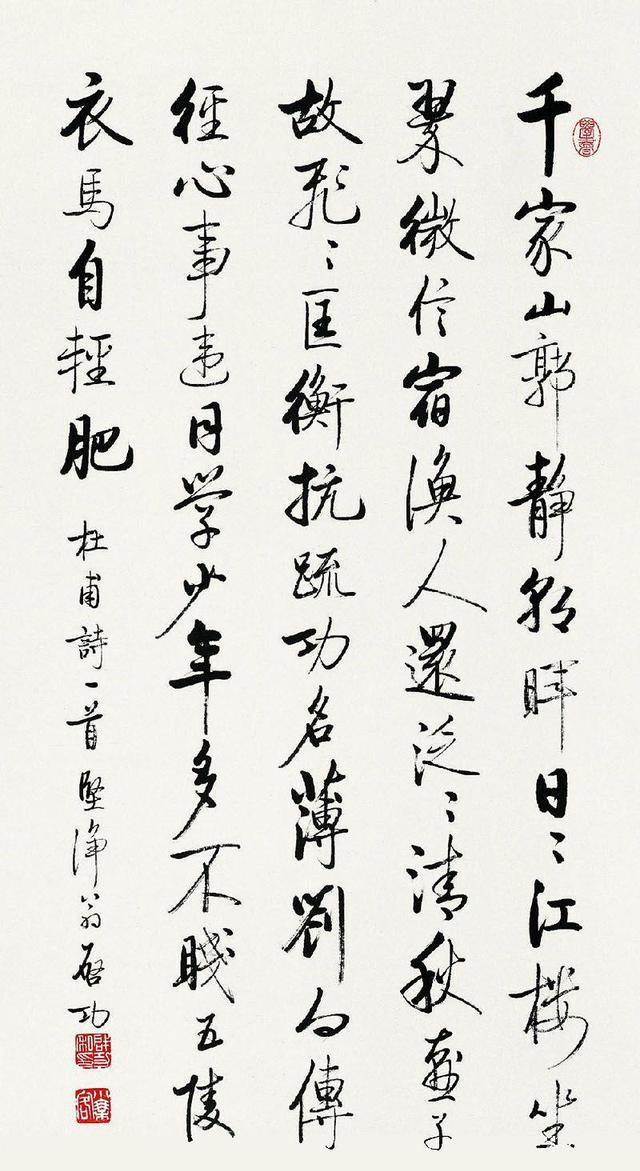 千家山郭靜朝暉日〻江樓坐
翠微信宿漁人還泛〻清秋燕子
故飛〻匡衡抗疏功名薄劉向傳
經心事違同學少年多不賤五陵
衣馬自輕肥 杜甫詩一首 堅淨翁啓功